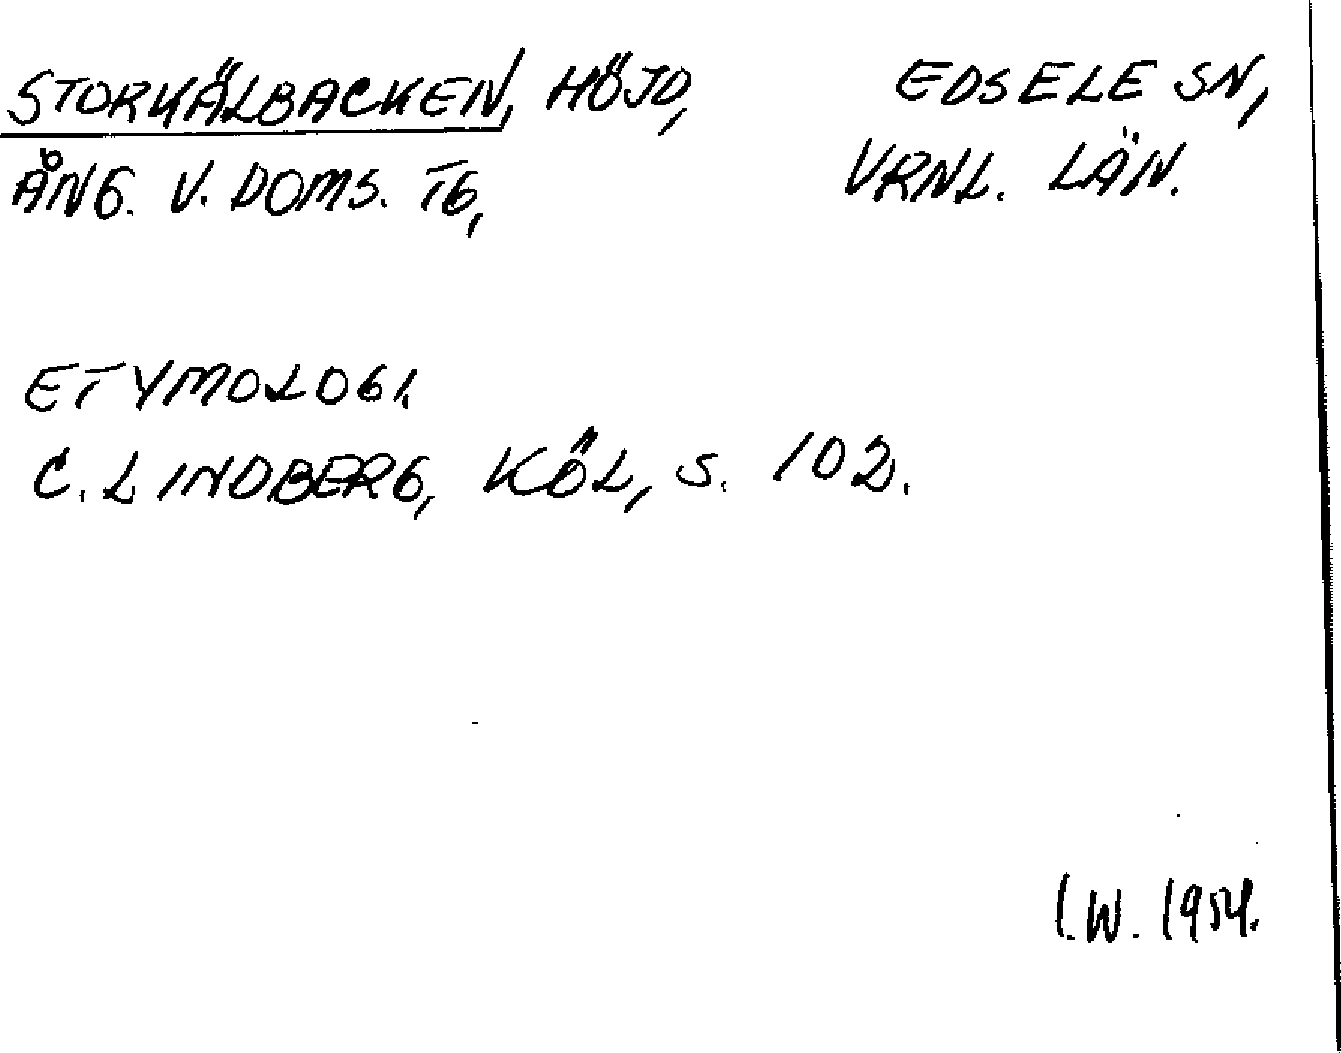 STORKÄLBACKEN, HÖJD, EDSELE SN,
ÅNG. V. DOMS. TG, VRNL. LÄN.
ETYMOLOGI.
C. LINDBERG, KÖL, S. 102.
I.W. 1954.